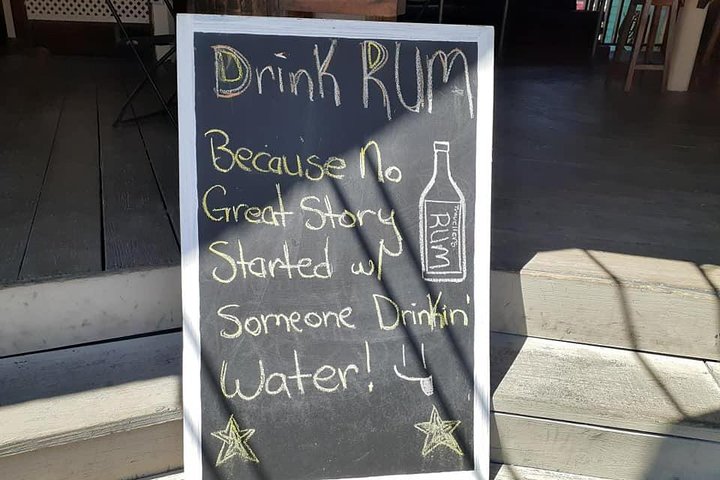 Drink RUM
Because No
Great Story
Started w/
Someone Drinkin'
Water!
Traveller's
RUM